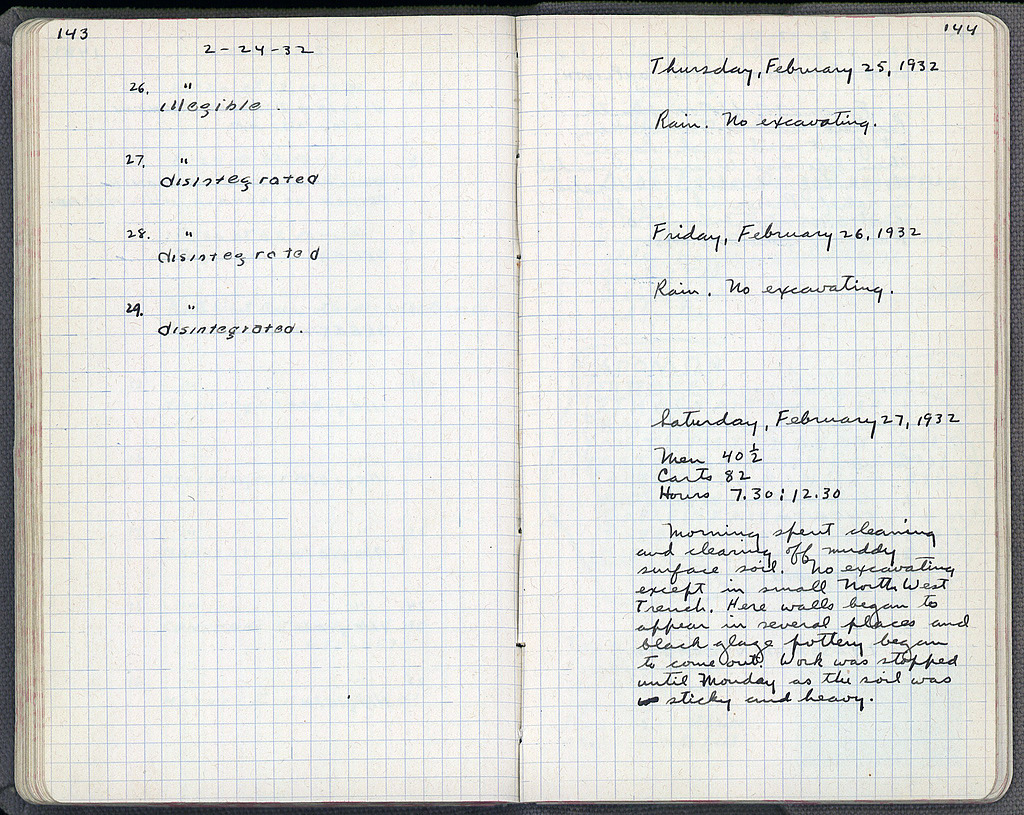 143
2-24-32
26. "
illegible.
27. "
disintegrated
28. "
disintegrated
29. "
disintegrated.
144
Thursday, February 25, 1932
Rain. No excavating.
Friday, February 26, 1932
Rain. No excavating.
Saturday, February 27, 1932
Men 40 1/2
Carts 82
Hours 7.30 : 12.30
Morning spent cleaning
and clearing off muddy
surface soil. No excavating
except in small North West
Trench. Here walls began to
appear in several places and
black glaze pottery began
to come out. Work was stopped
until Monday as the soil was
sticky and heavy.